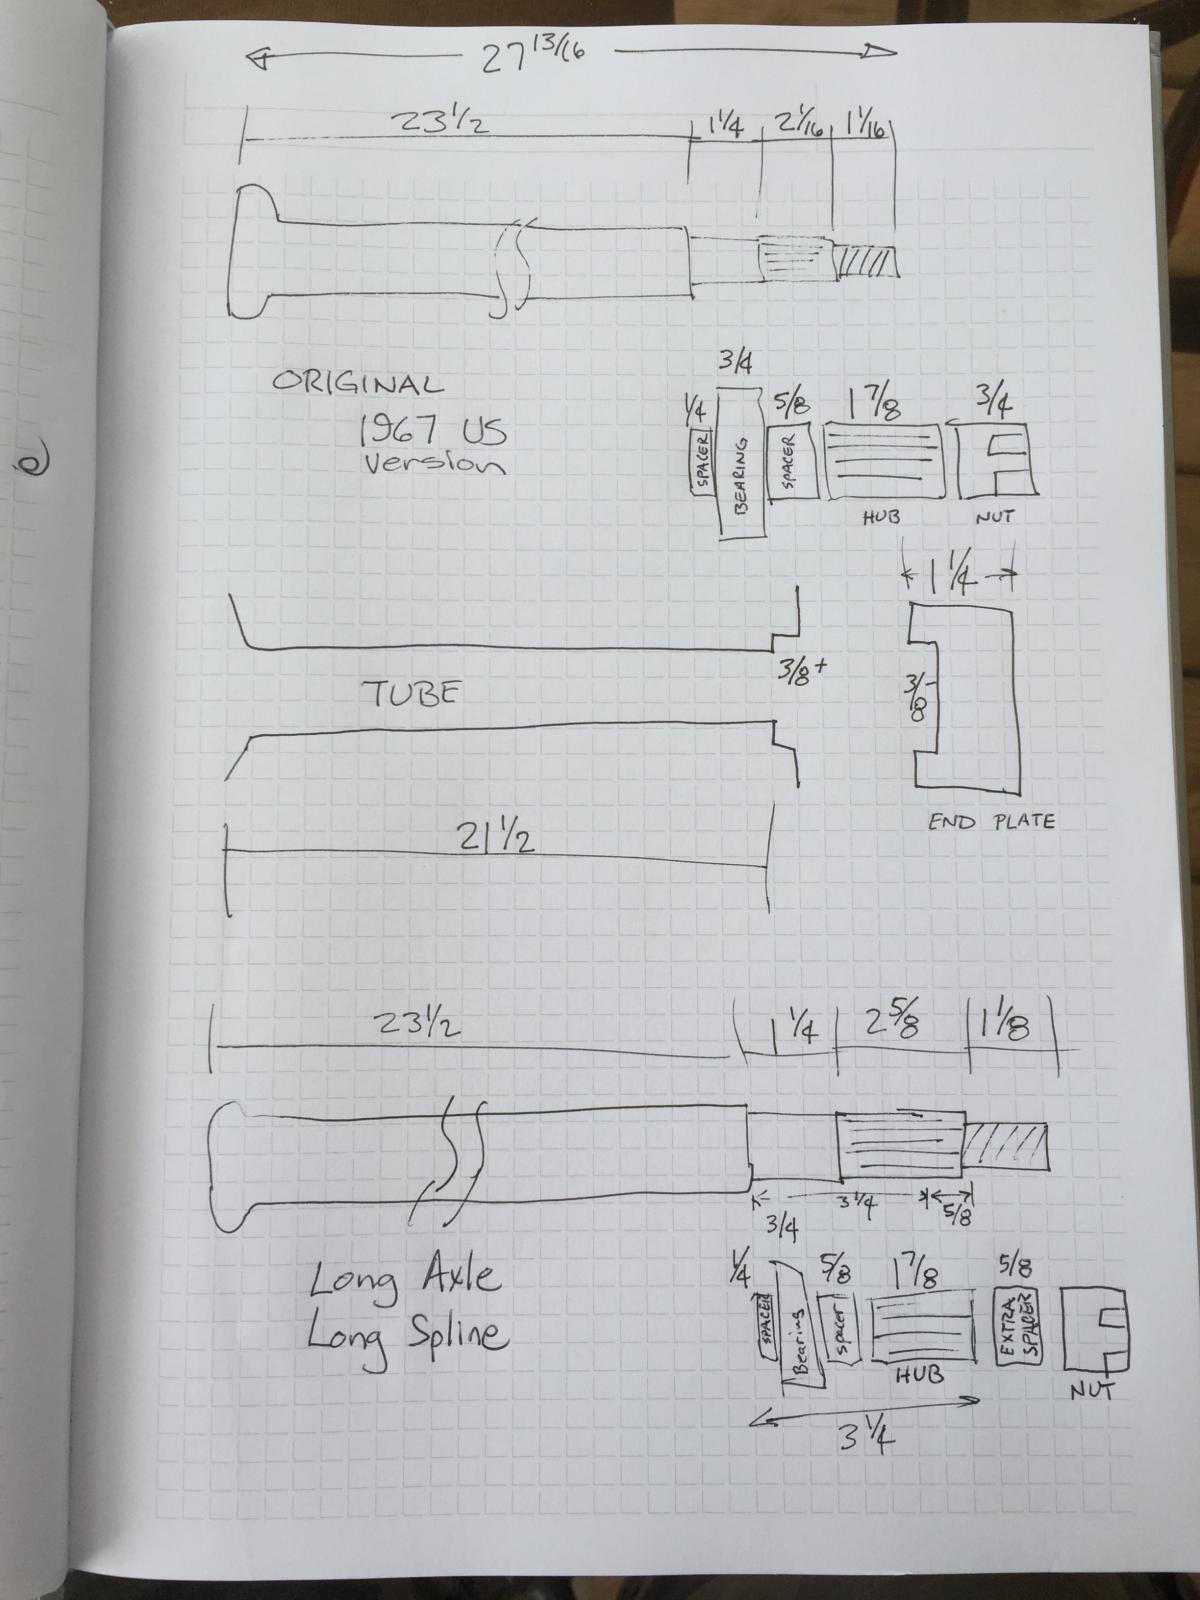 27 13/16
23 1/2
1 1/4 2 1/16 1 1/16
ORIGINAL
1967 US
version
1/4 3/4 5/8 1 7/8 3/4
SPACER
BEARING
SPACER
HUB NUT
1 1/4
3/8+
3/8
TUBE
END PLATE
21 1/2
23 1/2 1 1/4 2 5/8 1 1/8
3 1/4 5/8
Long Axle
Long Spline
1/4 3/4 5/8 1 7/8 5/8
SPACER
Bearing
spacer
HUB
EXTRA
SPACER
NUT
3 1/4